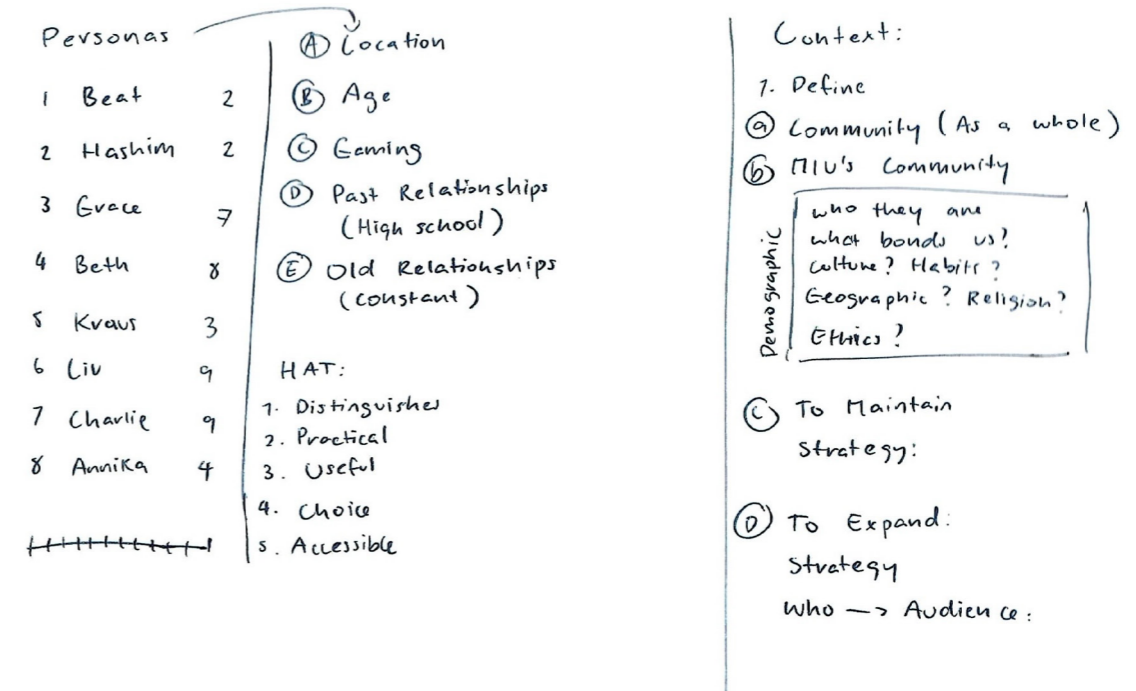 Personas
1 Beat 2
2 Hashim 2
3 Grace 7
4 Beth 8
5 Kraus 3
6 Liv 9
7 Charlie 9
8 Annika 4
Ⓐ Location
Ⓑ Age
Ⓒ Gaming
Ⓓ Past Relationships
(High school)
Ⓔ Old Relationships
(constant)
HAT:
1. Distinguishes
2. Practical
3. Useful
4. Choice
5. Accessible
Context:
1. Define
ⓐ Community (As a whole)
ⓑ MIU's Community
Demographic
who they are
what bonds us?
culture? Habits?
Geographic? Religion?
Ethics?
Ⓒ To Maintain
Strategy:
Ⓓ To Expand:
Strategy
Who —> Audience: